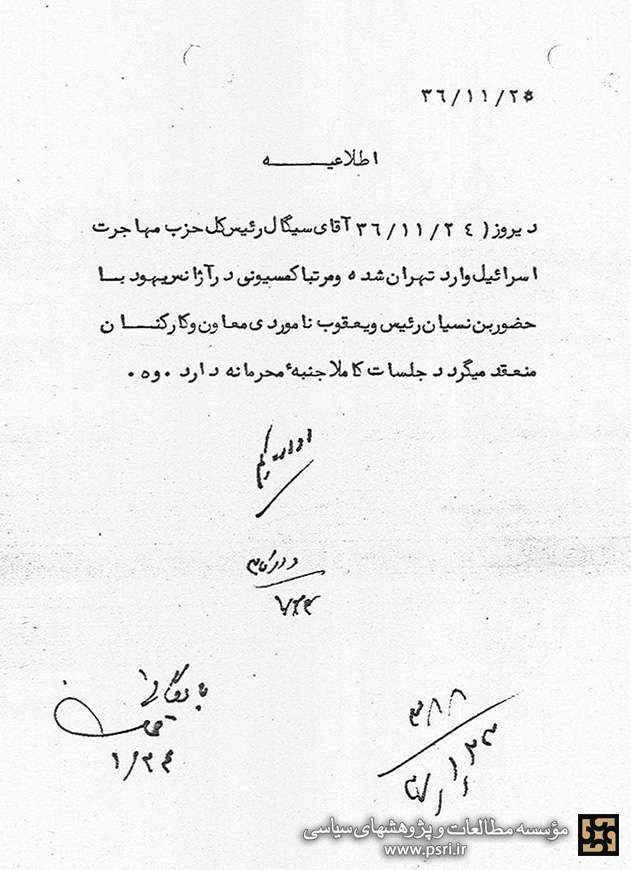 ۳۶/۱۱/۲۵
اطلاعیـــــــه
دیروز (۳۶/۱۱/۲٤ آقای سیگال رئیس کل حزب مهاجرت
اسرائیل وارد تهران شده ومرتبا کمسیونی در آژانس یهود بـا
حضور بن نسیان رئیس ویعقوب ناموردی معاون وکارکنـــان
منعقد میگردد جلسات کاملا جنبهٔ محرمانه دارد . وه .
اداره یکم
بایگانی
۳۸۸
مؤسسه مطالعات و پژوهشهای سیاسی
www.psri.ir